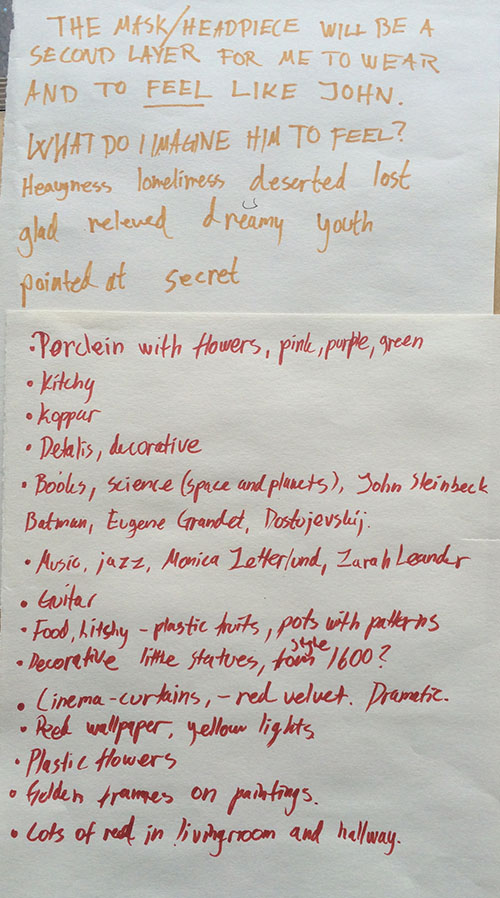 THE MASK/HEADPIECE WILL BE A
SECOND LAYER FOR ME TO WEAR
AND TO FEEL LIKE JOHN.
WHAT DO I IMAGINE HIM TO FEEL?
Heavyness loneliness deserted lost
glad releved dreamy youth
pointed at secret
• Porclein with flowers, pink, purple, green
• Kitchy
• Koppar
• Detalis, decorative
• Books, science (space and planets), John Steinbeck
Batman, Eugene Grandet, Dostojevskij.
• Music, jazz, Monica Zetterlund, Zarah Leander
• Guitar
• Food, kitshy - plastic fruits, pots with patterns
• Decorative little statues, from style 1600?
• Cinema-curtains, - red velvet. Dramatic.
• Red wallpaper, yellow lights
• Plastic flowers
• Golden frames on paintings.
• Lots of red in livingroom and hallway.